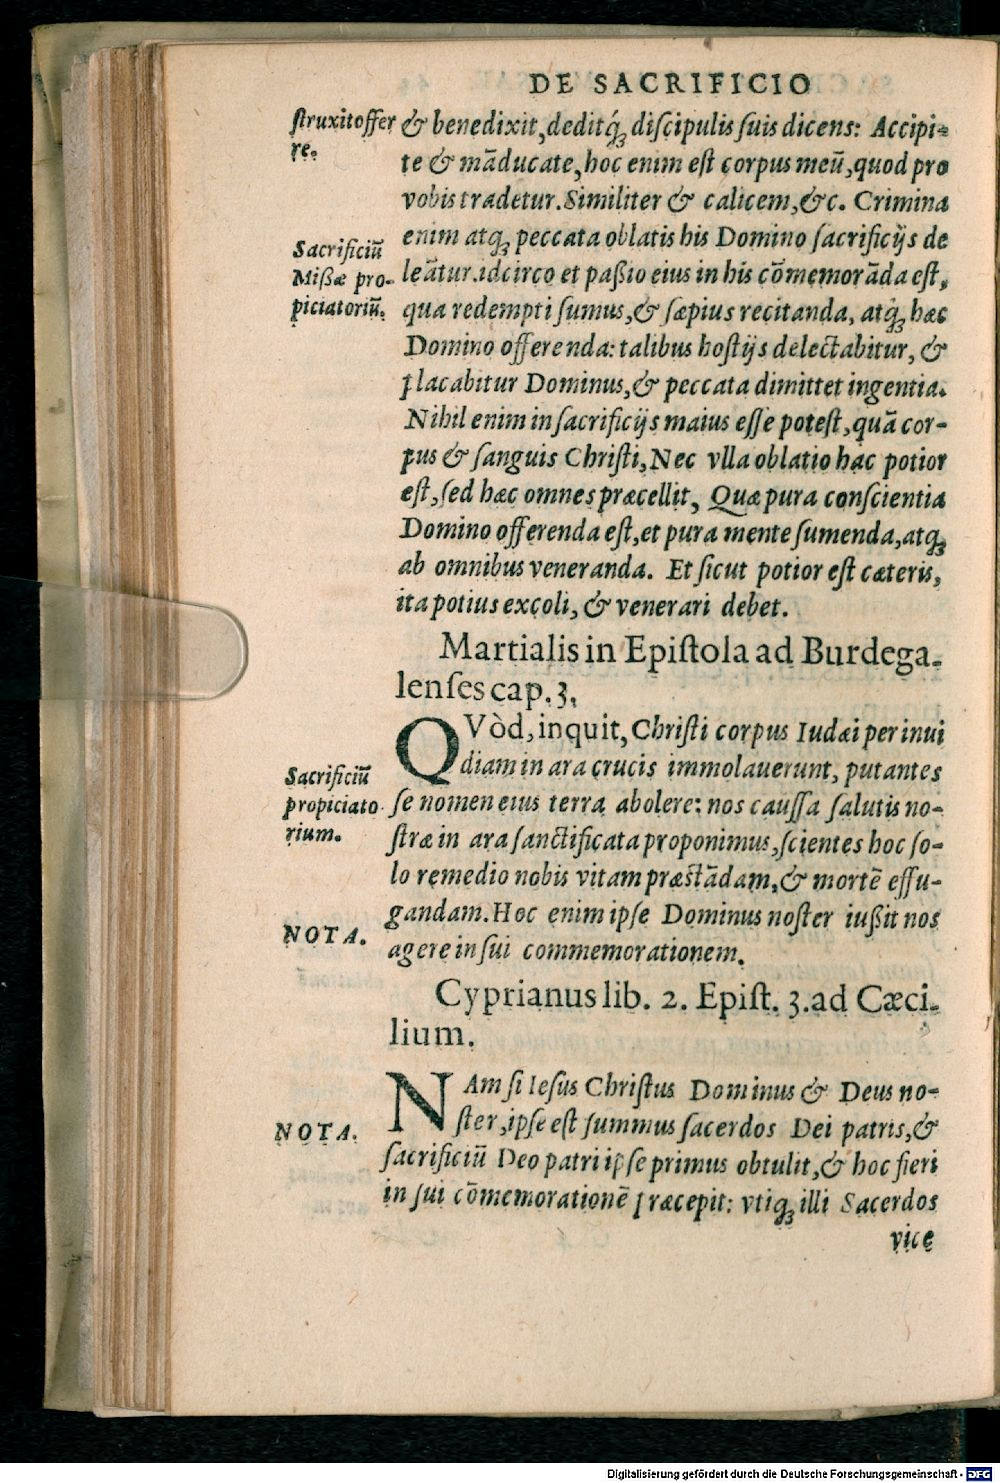 DE SACRIFICIO
ſtruxit offer
re.
& benedixit, deditq́; diſcipulis ſuis dicens: Accipi-
te & māducate, hoc enim eſt corpus meū, quod pro
vobis tradetur. Similiter & calicem, &c. Crimina
enim atq; peccata oblatis his Domino ſacrificijs de
leātur. idcirco et paßio eius in his cōmemorāda eſt,
qua redempti ſumus, & ſæpius recitanda, atq́; hæc
Domino offerenda: talibus hoſtijs delectabitur, &
placabitur Dominus, & peccata dimittet ingentia.
Sacrificiū
Mißæ pro-
piciatoriū.
Nihil enim in ſacrificijs maius eſſe poteſt, quā cor-
pus & ſanguis Chriſti, Nec vlla oblatio hac potior
eſt, ſed hæc omnes præcellit, Quæ pura conſcientia
Domino offerenda eſt, et pura mente ſumenda, atq;
ab omnibus veneranda. Et ſicut potior eſt cæteris,
ita potius excoli, & venerari debet.
Martialis in Epiſtola ad Burdega-
lenſes cap. 3.
QVòd, inquit, Chriſti corpus Iudæi per inui
diam in ara crucis immolauerunt, putantes
ſe nomen eius terra abolere: nos cauſſa ſalutis no-
ſtræ in ara ſanctificata proponimus, ſcientes hoc ſo-
lo remedio nobis vitam præſtādam, & mortē effu-
gandam. Hoc enim ipſe Dominus noſter iußit nos
agere in ſui commemorationem.
Sacrificiū
propiciato
rium.
NOTA.
Cyprianus lib. 2. Epiſt. 3. ad Cæci-
lium.
NAm ſi Ieſus Chriſtus Dominus & Deus no-
ſter, ipſe eſt ſummus ſacerdos Dei patris, &
ſacrificiū Deo patri ipſe primus obtulit, & hoc fieri
in ſui cōmemorationē præcepit: vtiq; illi Sacerdos
NOTA.
vice
Digitalisierung gefördert durch die Deutsche Forschungsgemeinschaft - DFG